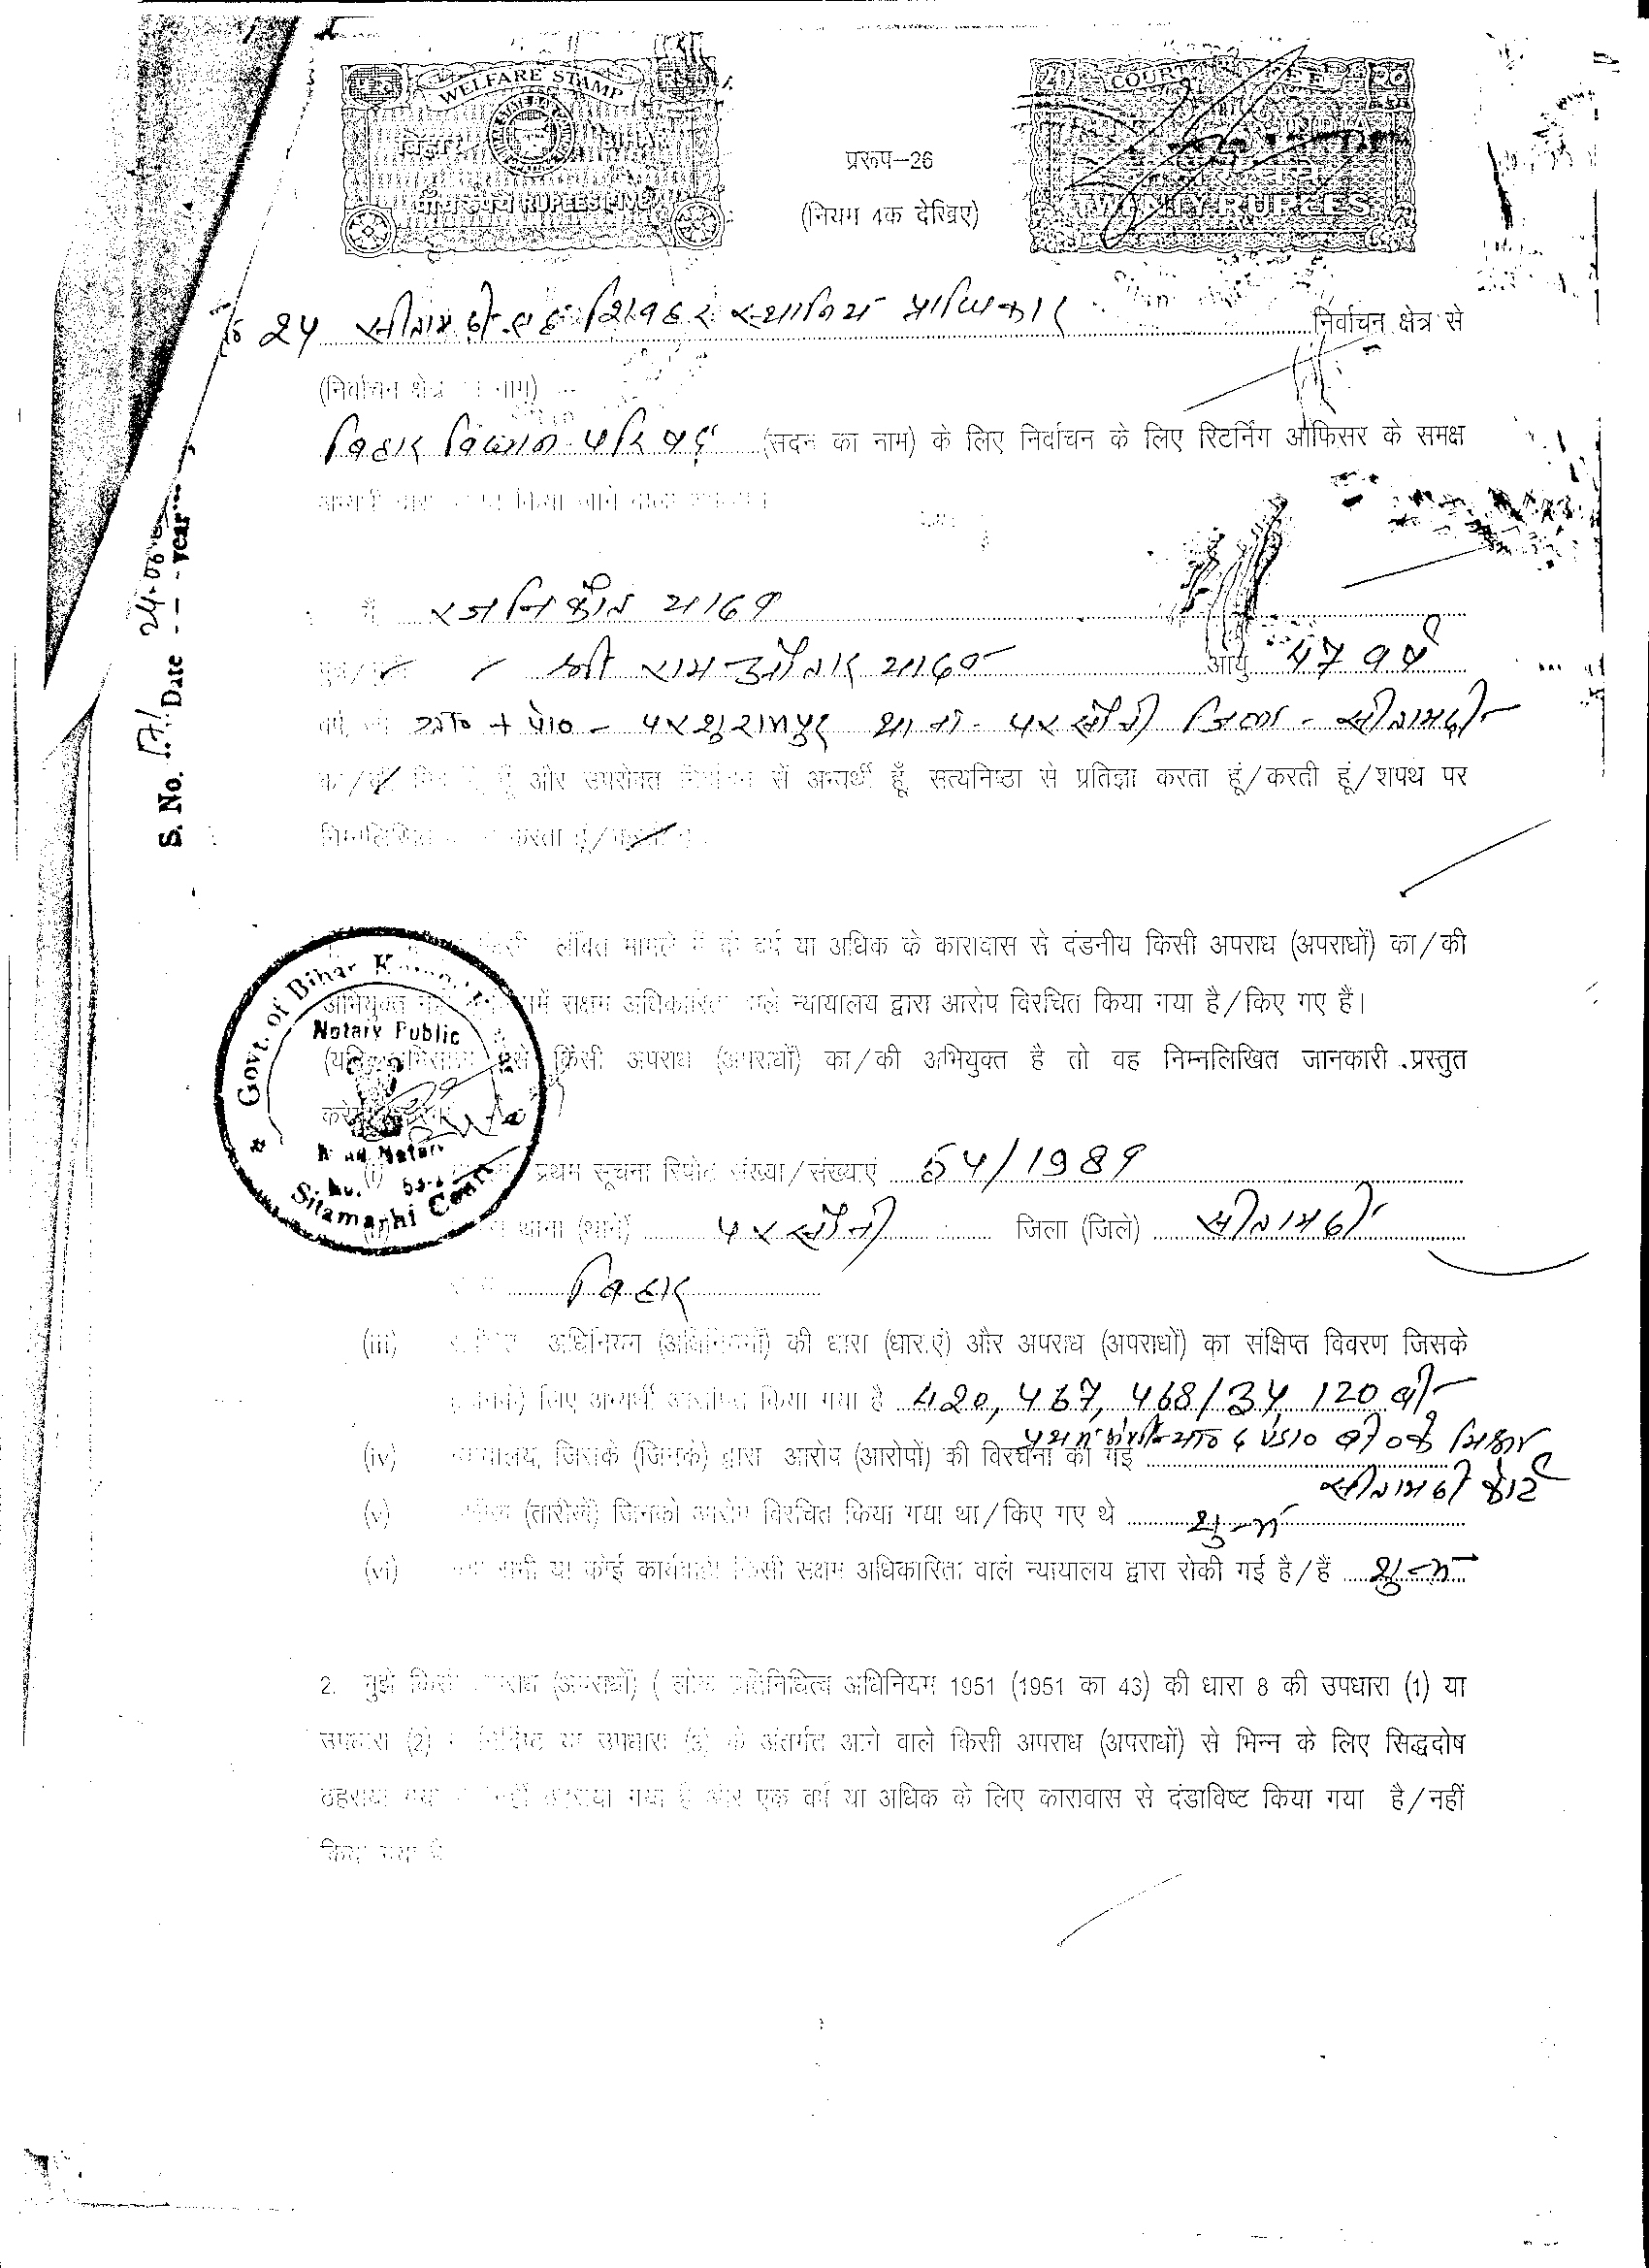 WELFARE STAMP
बिहार BIHAR
पाँच रुपये RUPEES FIVE
20 COURT FEE 20
INDIA
TWENTY RUPEES
प्ररूप-26
(नियम 4क देखिए)
24 सीतामढ़ी सह शिवहर स्थानिय प्राधिकार निर्वाचन क्षेत्र से
(निर्वाचन क्षेत्र का नाम)
बिहार विधान परिषद् (सदन का नाम) के लिए निर्वाचन के लिए रिटर्निंग ऑफिसर के समक्ष
S. No. 17/ Date 24.06 year
मैं
श्री राम औतार यादव आयु 47 वर्ष
ग्रा० + पो० - परशुरामपुर थाना - परसौनी जिला - सीतामढ़ी
और उपरोक्त निर्वाचन से अभ्यर्थी हूँ, सत्यनिष्ठा से प्रतिज्ञा करता हूं/करती हूं/शपथ पर
निम्नलिखित करता हूं/
लंबित मामले में दो वर्ष या अधिक के कारावास से दंडनीय किसी अपराध (अपराधों) का/की
अभियुक्त सक्षम अधिकारिता वाले न्यायालय द्वारा आरोप विरचित किया गया है/किए गए हैं।
किसी अपराध (अपराधों) का/की अभियुक्त है तो वह निम्नलिखित जानकारी प्रस्तुत
Govt. of Bihar
Notary Public
Sitamarhi Court
(i) प्रथम सूचना रिपोर्ट संख्या/संख्याएं 54/1989
(ii) थाना (थाने) परसौनी जिला (जिले) सीतामढ़ी
बिहार
(iii) अधिनियम (अधिनियमों) की धारा (धाराएं) और अपराध (अपराधों) का संक्षिप्त विवरण जिसके
लिए अभ्यर्थी आरोपित किया गया है 420, 467, 468/34, 120 बी
(iv) न्यायालय, जिसके (जिनके) द्वारा आरोप (आरोपों) की विरचना की गई
सीतामढ़ी कोर्ट
(v) (तारीखें) जिनको आरोप विरचित किया गया था/किए गए थे शुन्य
(vi) सभी या कोई कार्यवाही किसी सक्षम अधिकारिता वाले न्यायालय द्वारा रोकी गई है/हैं शुन्य
2. मुझे किसी अपराध (अपराधों) ( लोक प्रतिनिधित्व अधिनियम 1951 (1951 का 43) की धारा 8 की उपधारा (1) या
उपधारा (2) में विनिर्दिष्ट या उपधारा (3) के अंतर्गत आने वाले किसी अपराध (अपराधों) से भिन्न के लिए सिद्धदोष
ठहराया गया है और एक वर्ष या अधिक के लिए कारावास से दंडाविष्ट किया गया है/नहीं
किया गया है